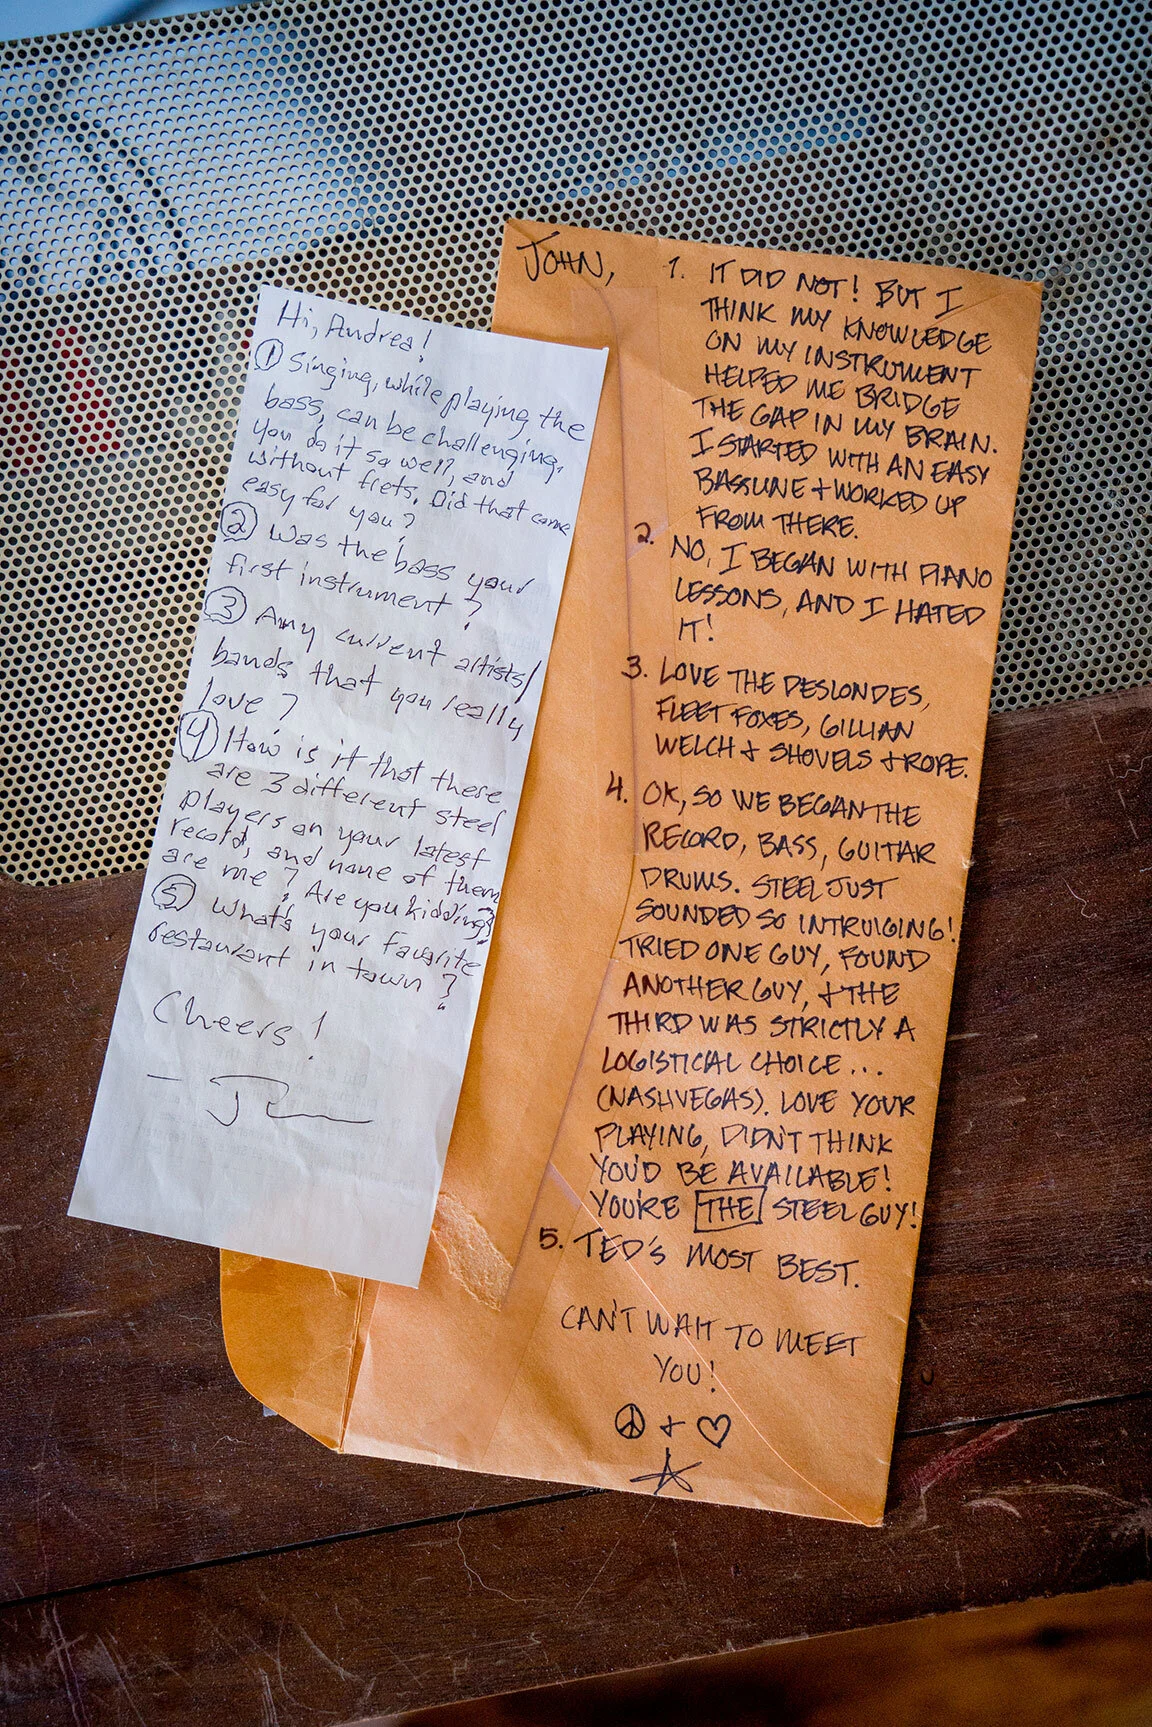 Hi, Andrea!
① Singing, while playing the
bass, can be challenging.
You do it so well, and
without frets. Did that come
easy for you?
② Was the bass your
first instrument?
③ Any current artists/
bands that you really
love?
④ How is it that there
are 3 different steel
players on your latest
record, and none of them
are me? Are you kidding?
⑤ What's your favorite
restaurant in town?
Cheers!
JOHN,
1. IT DID NOT! BUT I
THINK MY KNOWLEDGE
ON MY INSTRUMENT
HELPED ME BRIDGE
THE GAP IN MY BRAIN.
I STARTED WITH AN EASY
BASSLINE + WORKED UP
FROM THERE.
2. NO, I BEGAN WITH PIANO
LESSONS, AND I HATED
IT!
3. LOVE THE DESLONDES,
FLEET FOXES, GILLIAN
WELCH + SHOVELS + ROPE.
4. OK, SO WE BEGAN THE
RECORD, BASS, GUITAR
DRUMS. STEEL JUST
SOUNDED SO INTRUIGING!
TRIED ONE GUY, FOUND
ANOTHER GUY, + THE
THIRD WAS STRICTLY A
LOGISTICAL CHOICE...
(NASHVEGAS). LOVE YOUR
PLAYING, DIDN'T THINK
YOU'D BE AVAILABLE!
YOU'RE THE STEEL GUY!
5. TED'S MOST BEST.
CAN'T WAIT TO MEET
YOU!
☮ + ♡